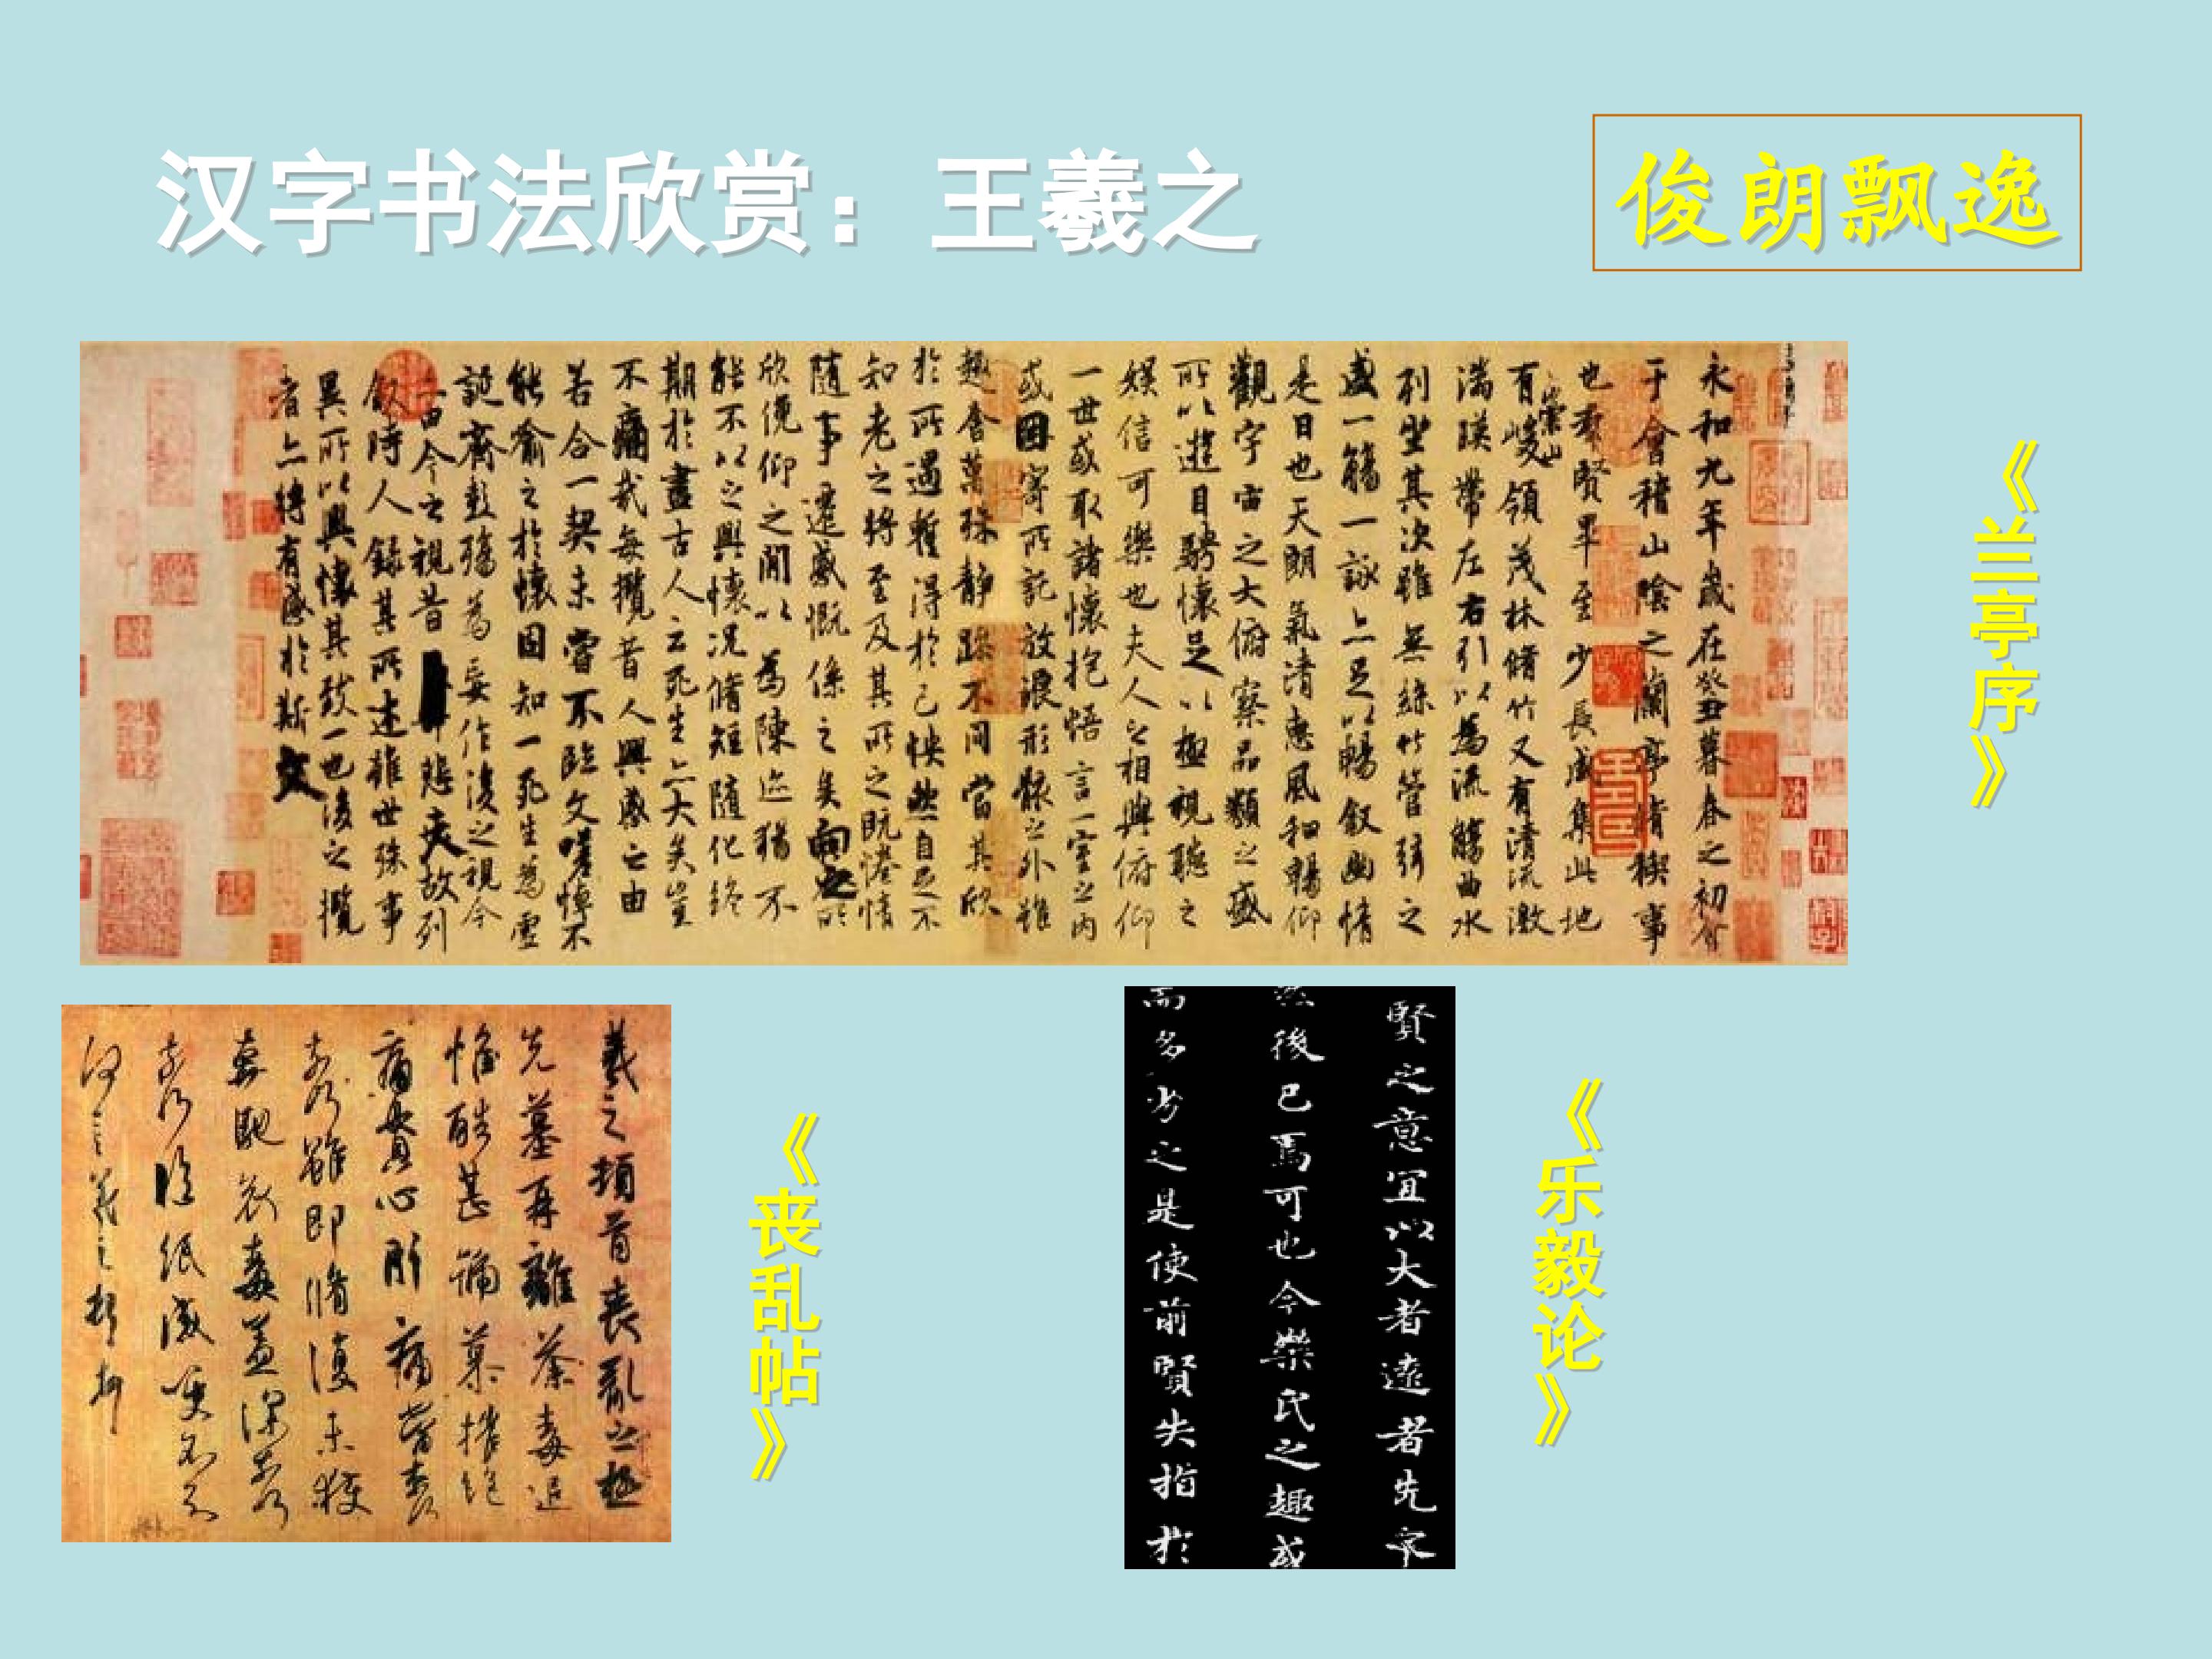 汉字书法欣赏：王羲之
俊朗飘逸
永和九年歲在癸丑暮春之初會
于會稽山陰之蘭亭脩稧事
也羣賢畢至少長咸集此地
有崇山峻領茂林脩竹又有清流激
湍暎帶左右引以為流觴曲水
列坐其次雖無絲竹管弦之
盛一觴一詠亦足以暢敘幽情
是日也天朗氣清惠風和暢仰
觀宇宙之大俯察品類之盛
所以遊目騁懷足以極視聽之
娛信可樂也夫人之相與俯仰
一世或取諸懷抱悟言一室之內
或因寄所託放浪形骸之外雖
趣舍萬殊靜躁不同當其欣
於所遇暫得於己怏然自足不
知老之將至及其所之既惓情
隨事遷感慨係之矣向之所
欣俛仰之閒以為陳迹猶不
能不以之興懷況脩短隨化終
期於盡古人云死生亦大矣豈
不痛哉每攬昔人興感之由
若合一契未嘗不臨文嗟悼不
能喻之於懷固知一死生為虛
誕齊彭殤為妄作後之視今
亦由今之視昔悲夫故列
敘時人錄其所述雖世殊事
異所以興懷其致一也後之攬
者亦將有感於斯文
《兰亭序》
羲之頓首喪亂之極
先墓再離荼毒追
惟酷甚號慕摧絕
痛貫心肝痛當奈何
奈何雖即脩復未獲
奔馳哀毒益深奈何
奈何臨紙感哽不知
何言羲之頓首頓首
《丧乱帖》
賢之意宜以大者遠者先之
後已焉可也今樂氏之趣或
而多劣之是使前賢失指於
《乐毅论》